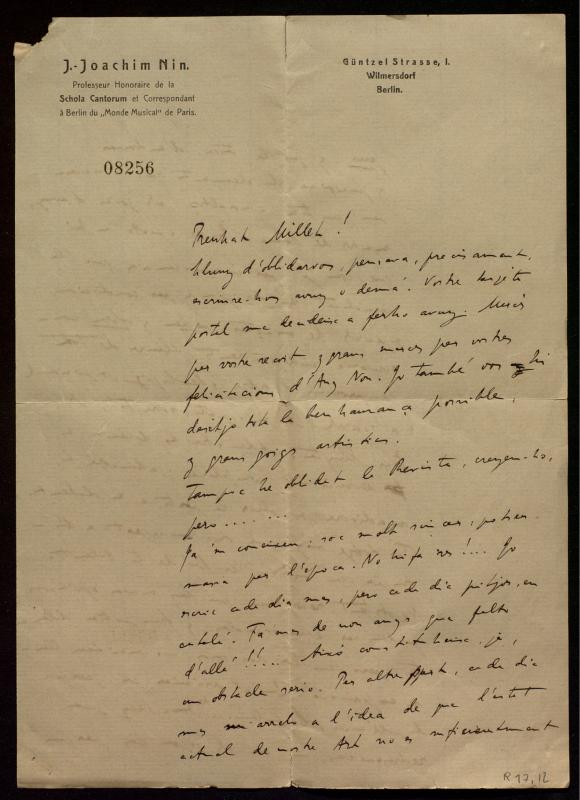 J.-Joachim Nin.
Professeur Honoraire de la
Schola Cantorum et Correspondant
à Berlin du „Monde Musical" de Paris.
Güntzel Strasse, 1.
Wilmersdorf
Berlin.
08256
Preuhat Millet!
Lluny d'oblidarvos, pensava, precisament,
escriure-hos avuy o demá. Vostre targeta
postal me a ferho avuy. Mercés
per vostre recort y grans merces per vostres
felicitacions d'Any Nou. Jo també vos
desitjo tota la benhauransa possible,
y grans goigs artistics.
Tampoc he oblidat la Revista, creyem-ho,
pero . . . . . . .
Ja'm coneixeu: soc molt sincer, potser
massa per l'epoca. No hi fa res!... Jo
escric cada dia mes, pero cada dia pitjor, en
catalá. Fa mes de nou anys que falto
d'allá!!... Aixó constitueix, ja,
un obstacle serio. Per altre part, cada dia
mes m'arrelo a l'idea de que l'estat
actual de nostre Art no es suficientment
R 17, 12